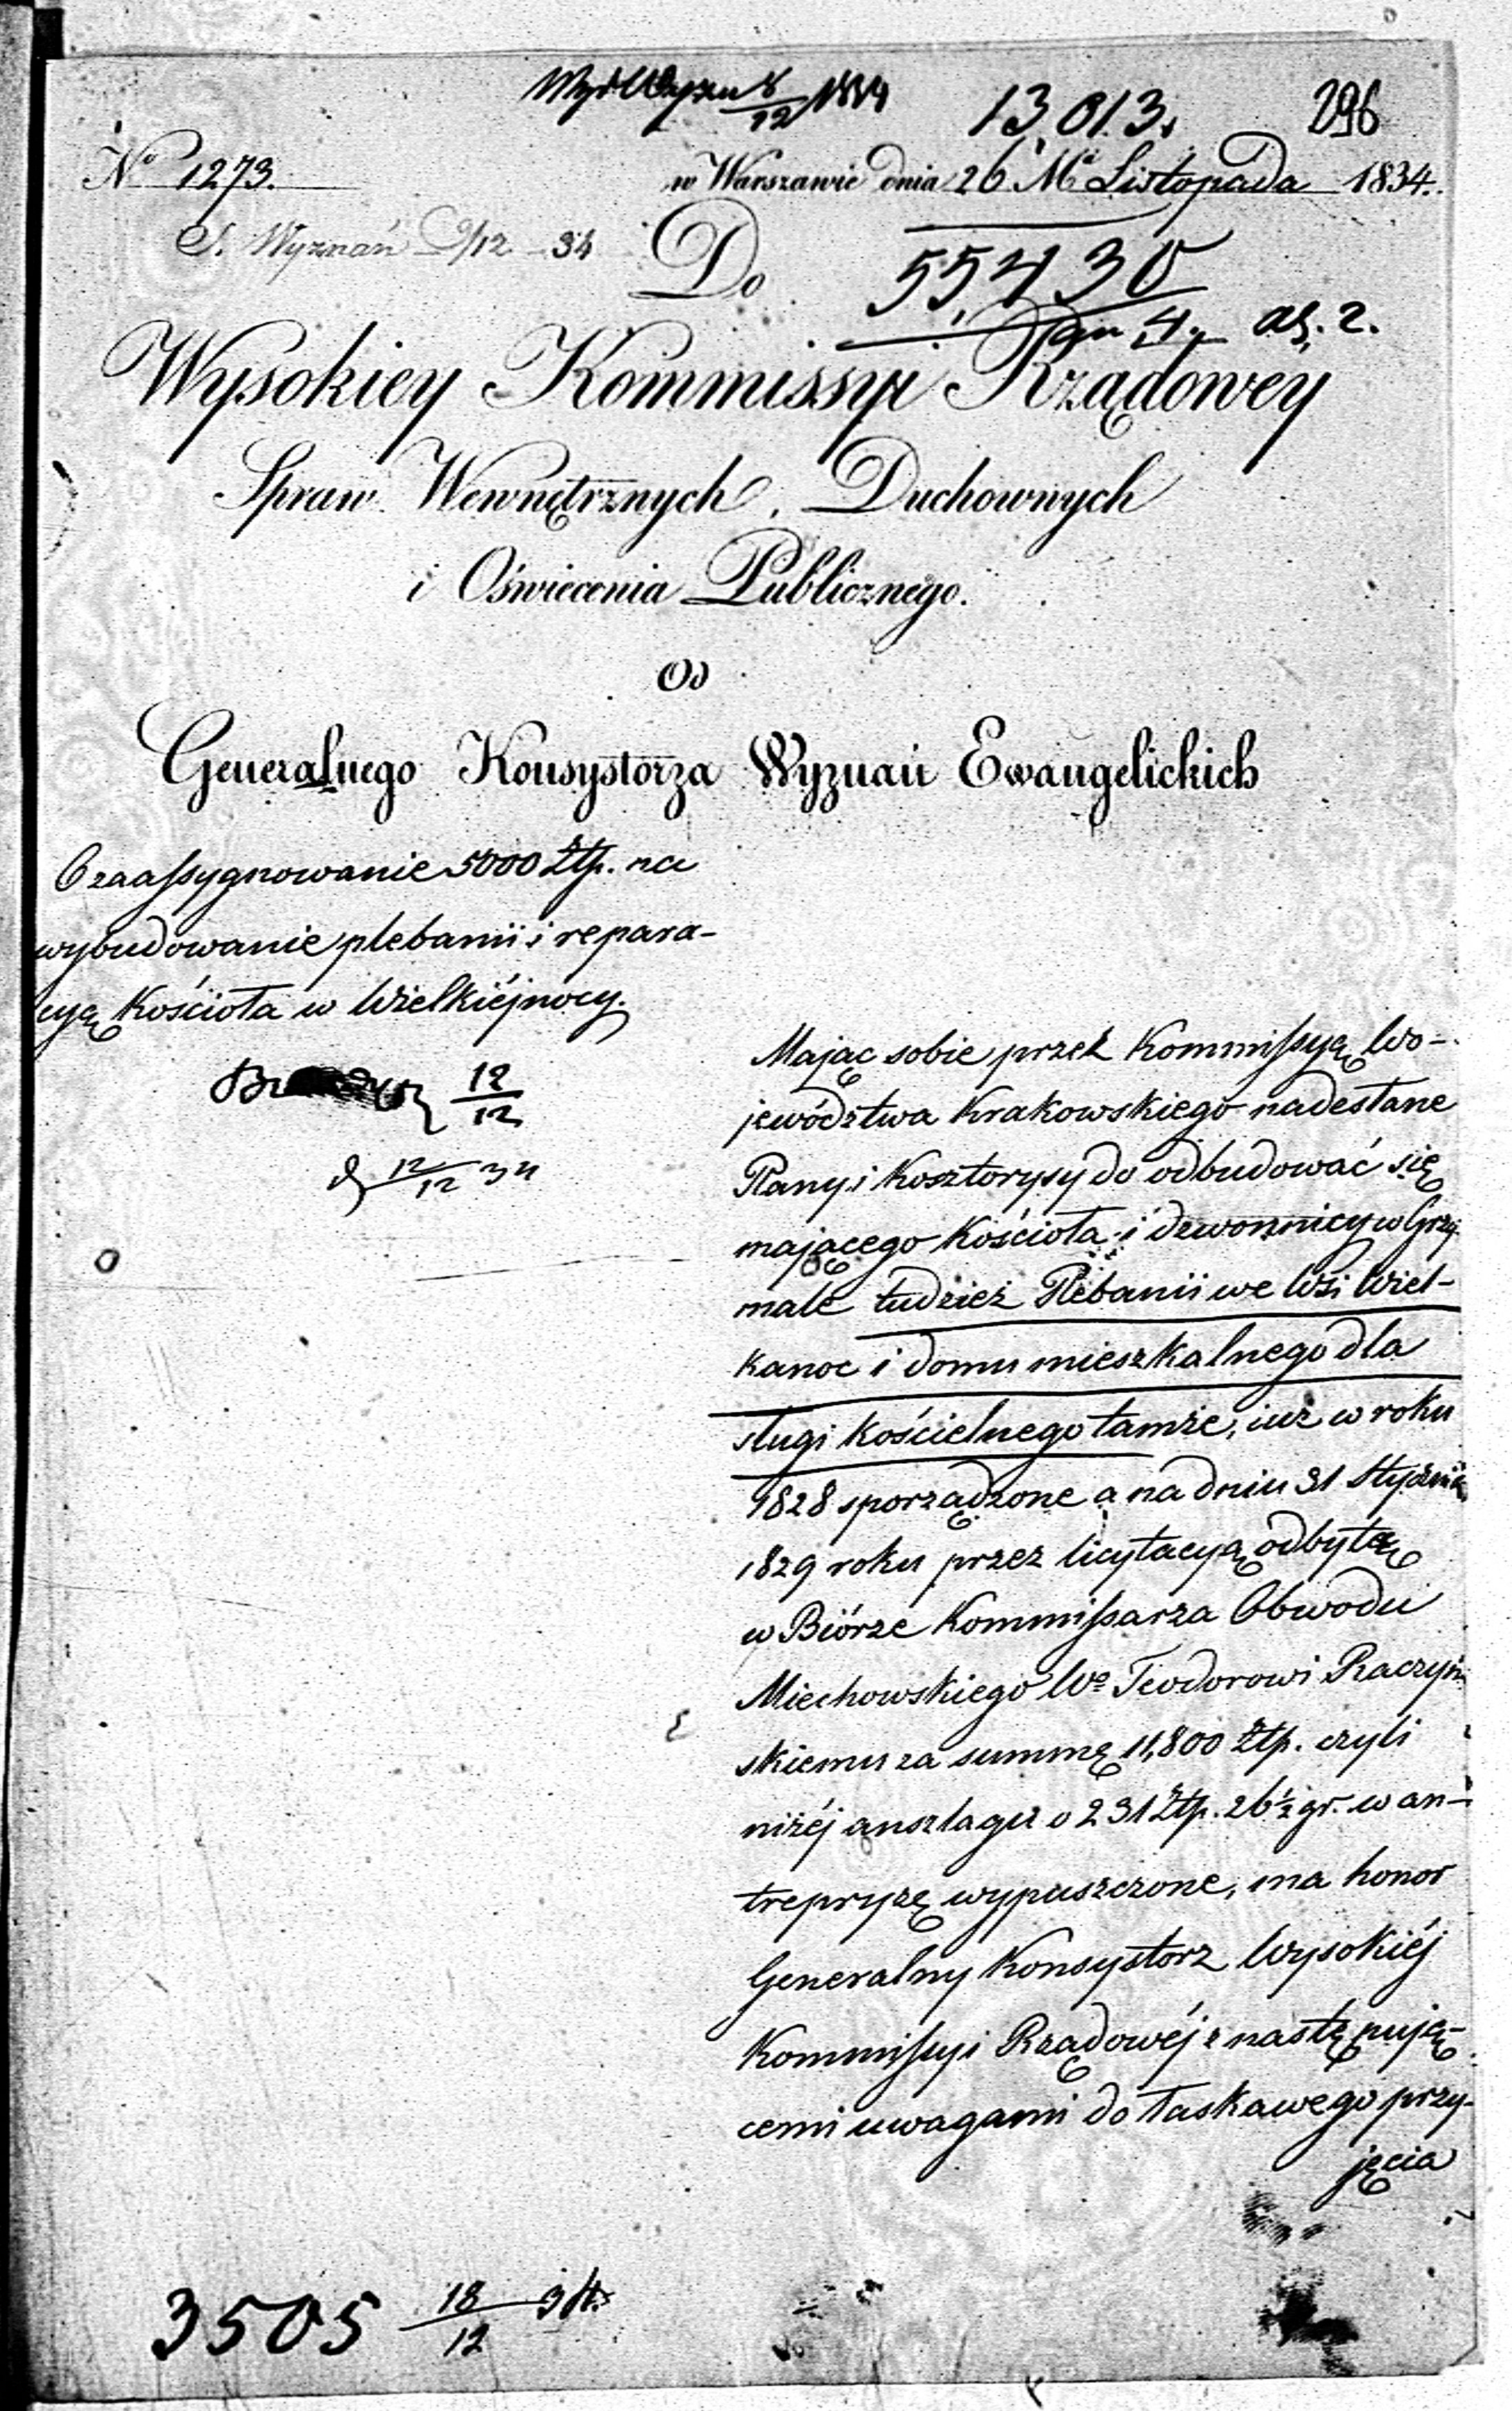 8/12 1834
13,013.
296
No 1273.
w Warszawie dnia 26 Ma Listopada 1834.
S. Wyznań 9/12 34
Do
55,430
dn 4. as. 2.
Wysokiey Kommissyi Rządowey
Spraw Wewnętrznych, Duchownych
i Oświecenia Publicznego.
Od
Generalnego Konsystorza Wyznań Ewangelickich
O zaassygnowanie 5000 Złp. na
wybudowanie plebanii i repara-
cyą Kościoła w Wielkiéjnocy.
12/12
12/12 34
Mając sobie przez Kommissyą Wo-
jewództwa Krakowskiego nadesłane
Plany i Kosztorysy do odbudować się
mającego Kościoła i dzwonnicy w Grzy
male tudzież Plebanii we Wsi Wiel-
kanoc i domu mieszkalnego dla
sługi kościelnego tamże, iuż w roku
1828 sporządzone a na dniu 31 Stycznia
1829 roku przez licytacyą odbytą
w Biórze Kommissarza Obwodu
Miechowskiego Wo Teodorowi Raczyń
skiemu za summę 11,800 Złp. czyli
niżéj anszlagu o 231 Złp. 26½ gr. w an-
trepryzę wypuszczone, ma honor
Generalny Konsystorz Wysokiéj
Kommissyi Rządowéj z następują-
cemi uwagami do łaskawego przy-
jęcia
3505 18/12 34.